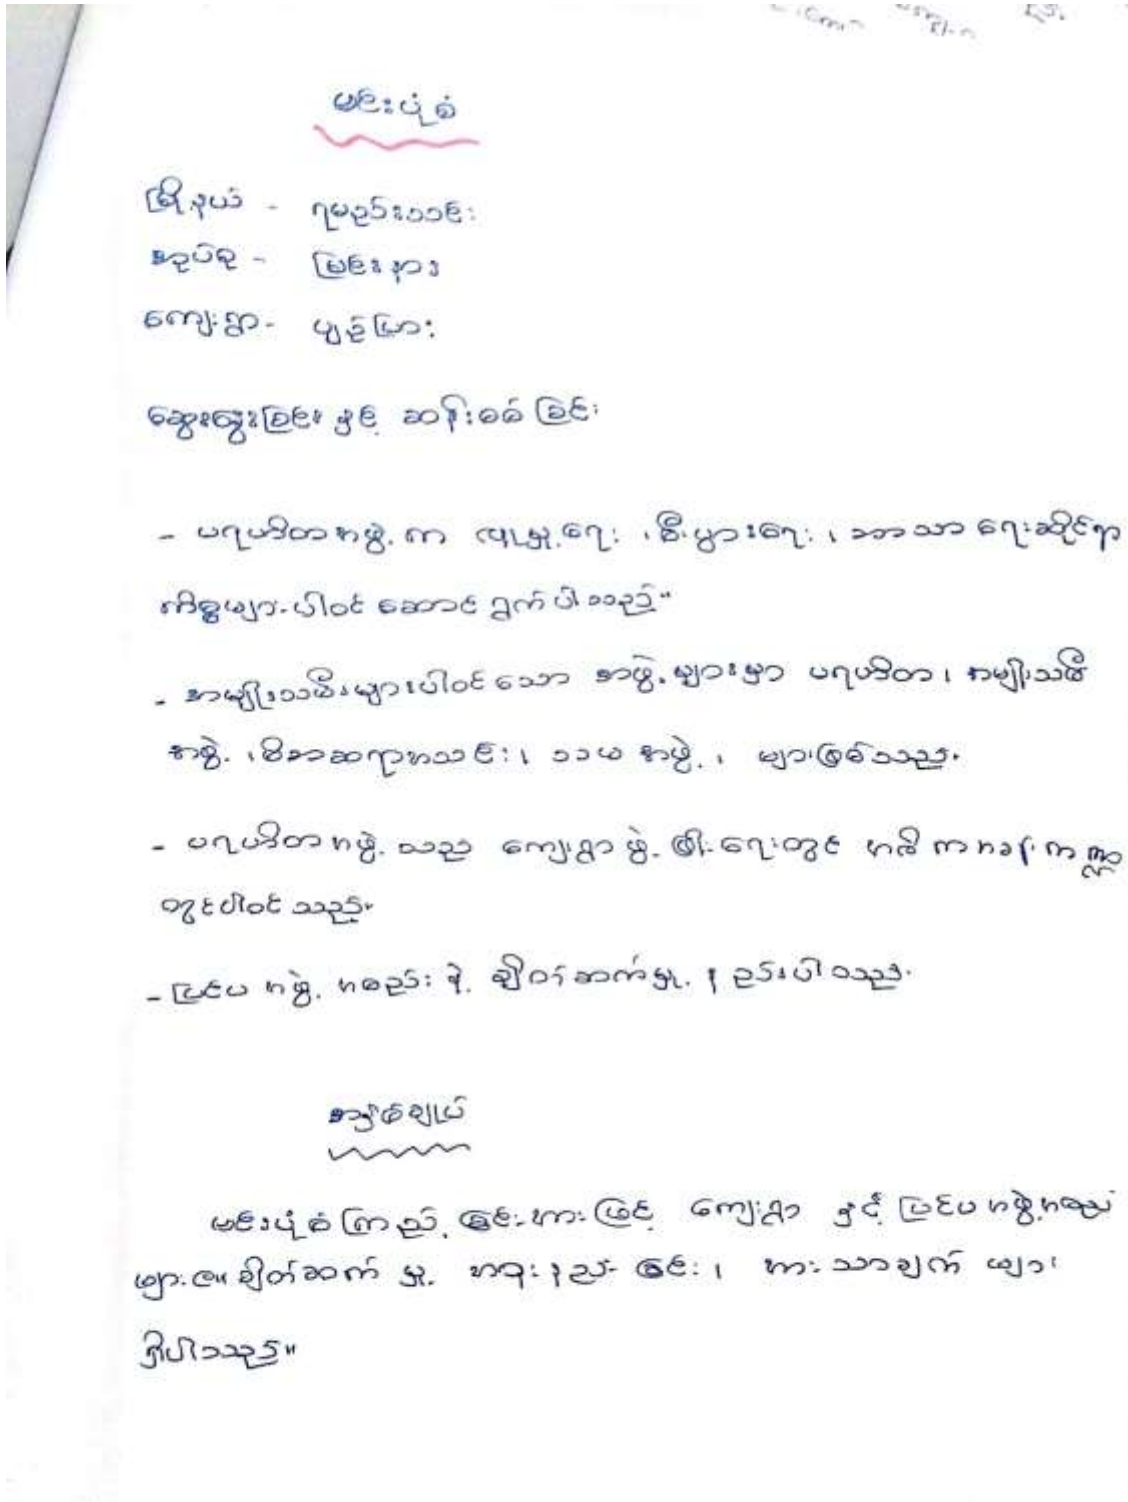 မင်းပုံစံ
မြို့နယ် - ရမည်းသင်း
အုပ်စု - မြင်းနား
ကျေးရွာ - ပျဉ်ပြား
ဆွေးနွေးခြင်း နှင့် ဆန်းစစ်ခြင်း
- ပရဟိတအဖွဲ့က လူမှုရေး ၊ စီးပွားရေး ၊ ဘာသာရေးဆိုင်ရာ
ကိစ္စများ ပါဝင် ဆောင်ရွက်ပါသည်။
- အမျိုးသမီးများပါဝင်သော အဖွဲ့များမှာ ပရဟိတ ၊ အမျိုးသမီ
အဖွဲ့ ၊ မိဘဆရာအသင်း ၊ သယအဖွဲ့ ၊ များဖြစ်သည်။
- ပရဟိတအဖွဲ့သည် ကျေးရွာဖွံ့ဖြိုးရေးတွင် အဓိကအခန်းကဏ္ဍ
တွင်ပါဝင်သည်။
- ပြင်ပအဖွဲ့အစည်းနဲ့ ချိတ်ဆက်မှု နည်းပါသည်။
အနှစ်ချုပ်
မင်းပုံစံကြည့်ခြင်းအားဖြင့် ကျေးရွာ နှင့် ပြင်ပအဖွဲ့အစည်း
များ၏ ချိတ်ဆက်မှု အားနည်းခြင်း ၊ အားသာချက်များ
ရှိပါသည်။